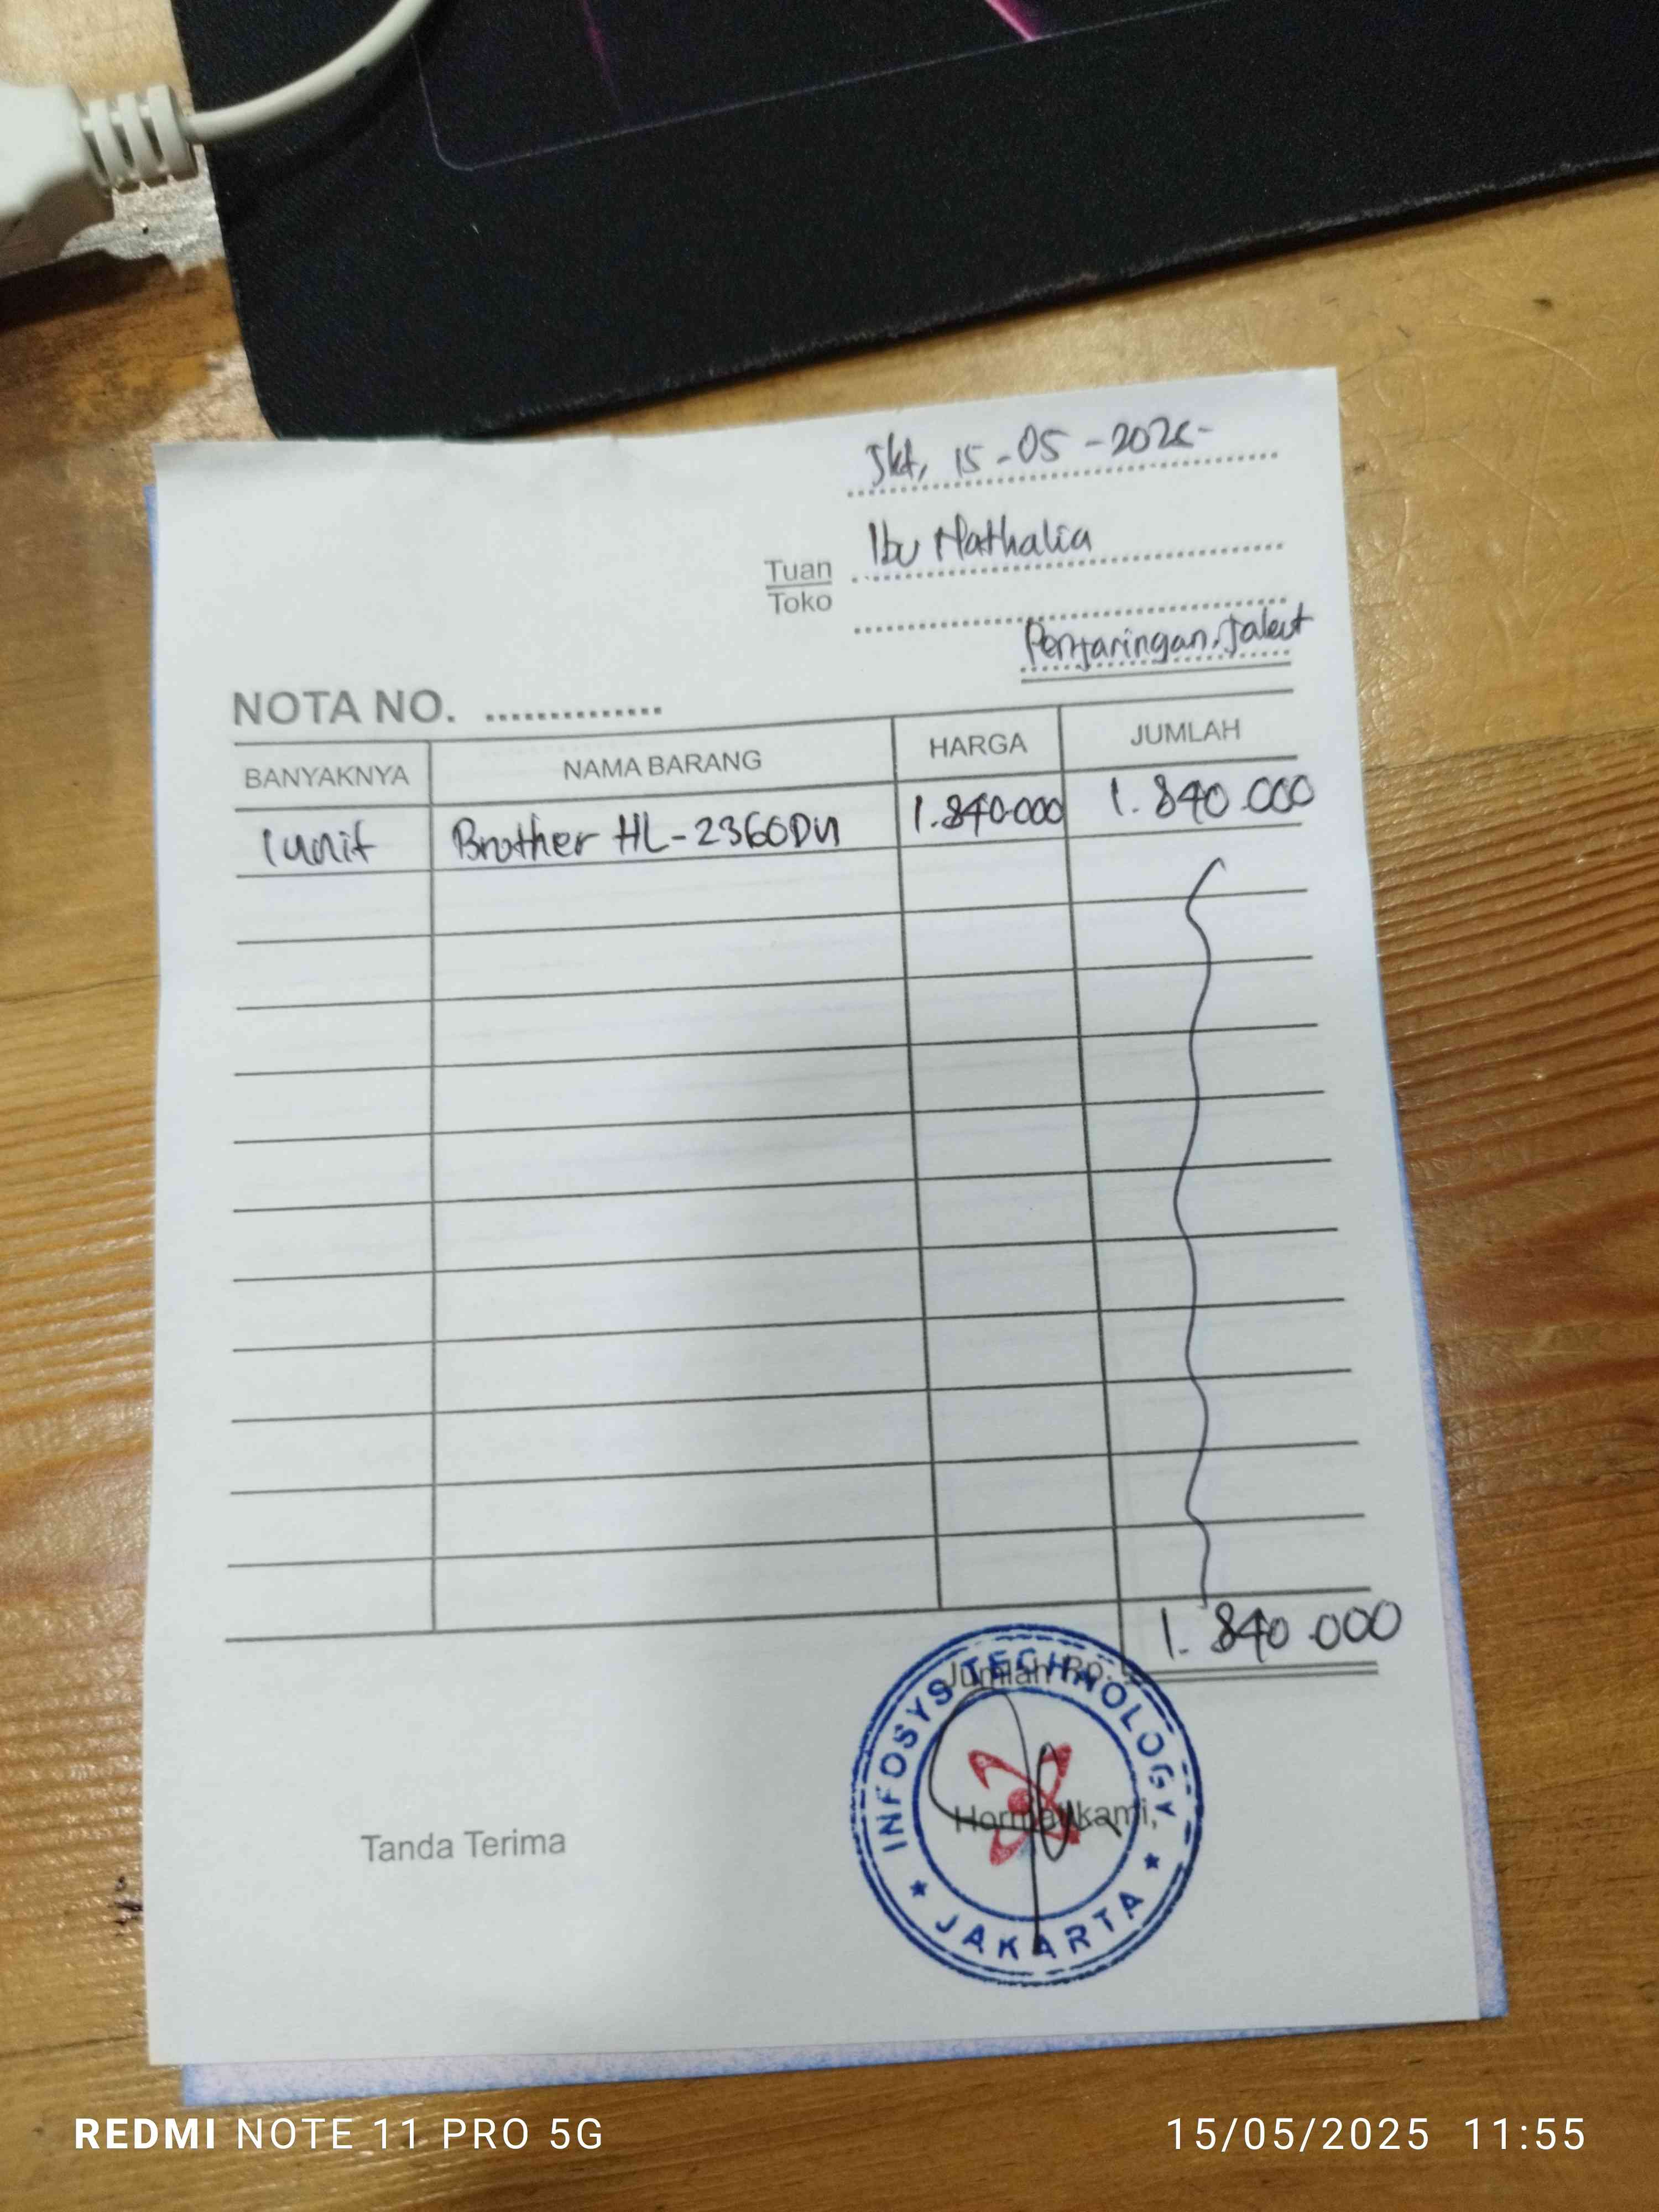 Jkt, 15-05-2025
Ibu Nathalia
Tuan
Toko
Penjaringan, Jakut
NOTA NO. ..............
BANYAKNYA NAMA BARANG HARGA JUMLAH
1 unit Brother HL-2360DN 1.840.000 1.840.000
1.840.000
Jumlah Rp.
INFOSYS TECHNOLOGY
Tanda Terima Hormat kami,
★ JAKARTA ★
REDMI NOTE 11 PRO 5G 15/05/2025 11:55